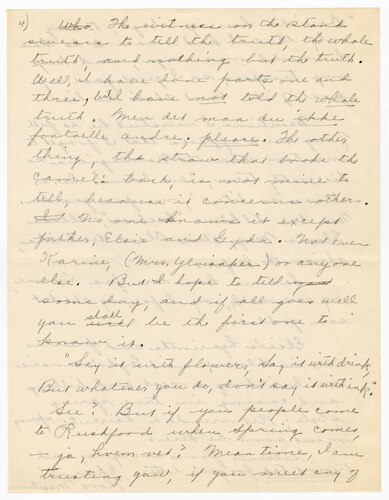 4) Who. The witness on the stand
swears to tell the truth, the whole
truth, and nothing but the truth.
Well, I have done parts one and
three, but have not told the whole
truth. Men det maa du ikke
fortaelle andre, please. The other
thing, the straw that broke the
camel's back, is not mine to
tell, because it concerns others.
No one knows it except
father, Elsie and Gyda. Not even
Karine, (Mrs. Ylvisaker) or anyone
else. But I hope to tell you
some day, and if all goes well
you shall be the first one to
know it.
"Say it with flowers, say it with drink,
But whatever you do, don't say it with ink."
See? But if you people come
to Rushford when spring comes,
- ja, hvem vet? Meantime, I am
trusting you, if you meet any of